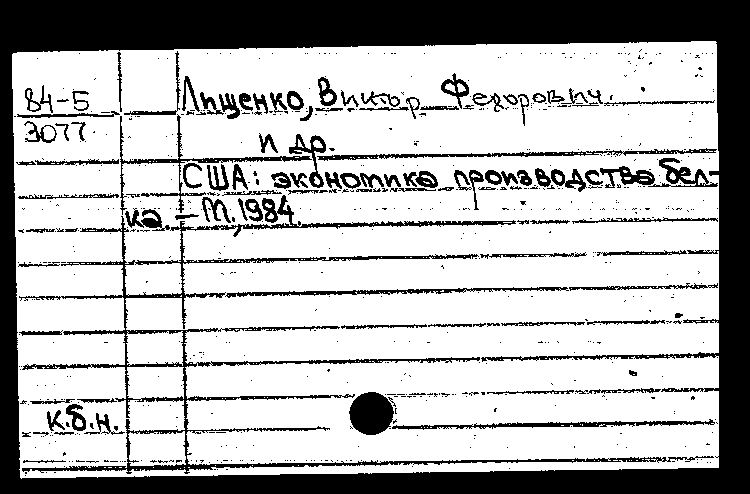 84-5 Лищенко, Виктор Федорович.
3077
и др.
США: экономика производства бел-
ка. – М., 1984.
к.б.н.